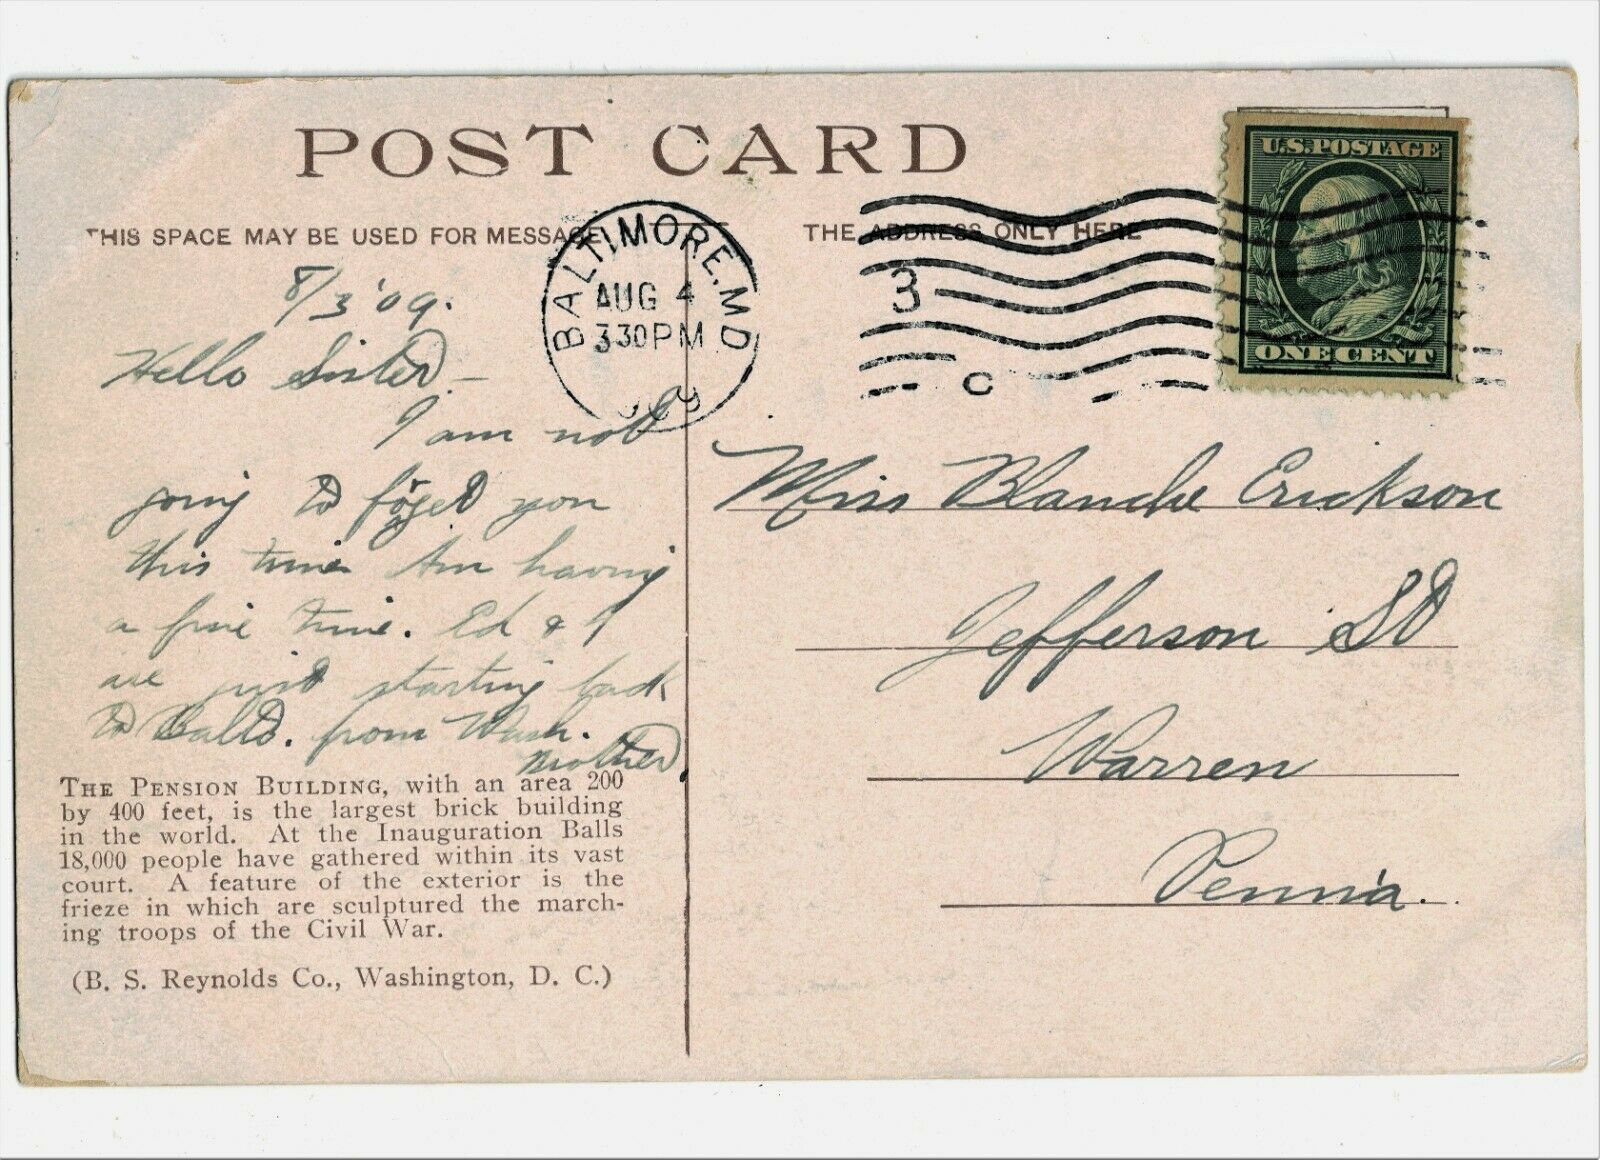 POST CARD
THIS SPACE MAY BE USED FOR MESSAGE
THE ADDRESS ONLY HERE
U.S. POSTAGE
ONE CENT
BALTIMORE, MD
AUG 4
330PM
3
C
8/3 '09.
Hello Sister –
I am not
going to forget you
this time Am having
a fine time. Ed & I
are just starting back
to Balto. from Wash.
Miss Blanche Erickson
Jefferson St
Warren
Penn'a.
THE PENSION BUILDING, with an area 200
by 400 feet, is the largest brick building
in the world. At the Inauguration Balls
18,000 people have gathered within its vast
court. A feature of the exterior is the
frieze in which are sculptured the march-
ing troops of the Civil War.
(B. S. Reynolds Co., Washington, D. C.)